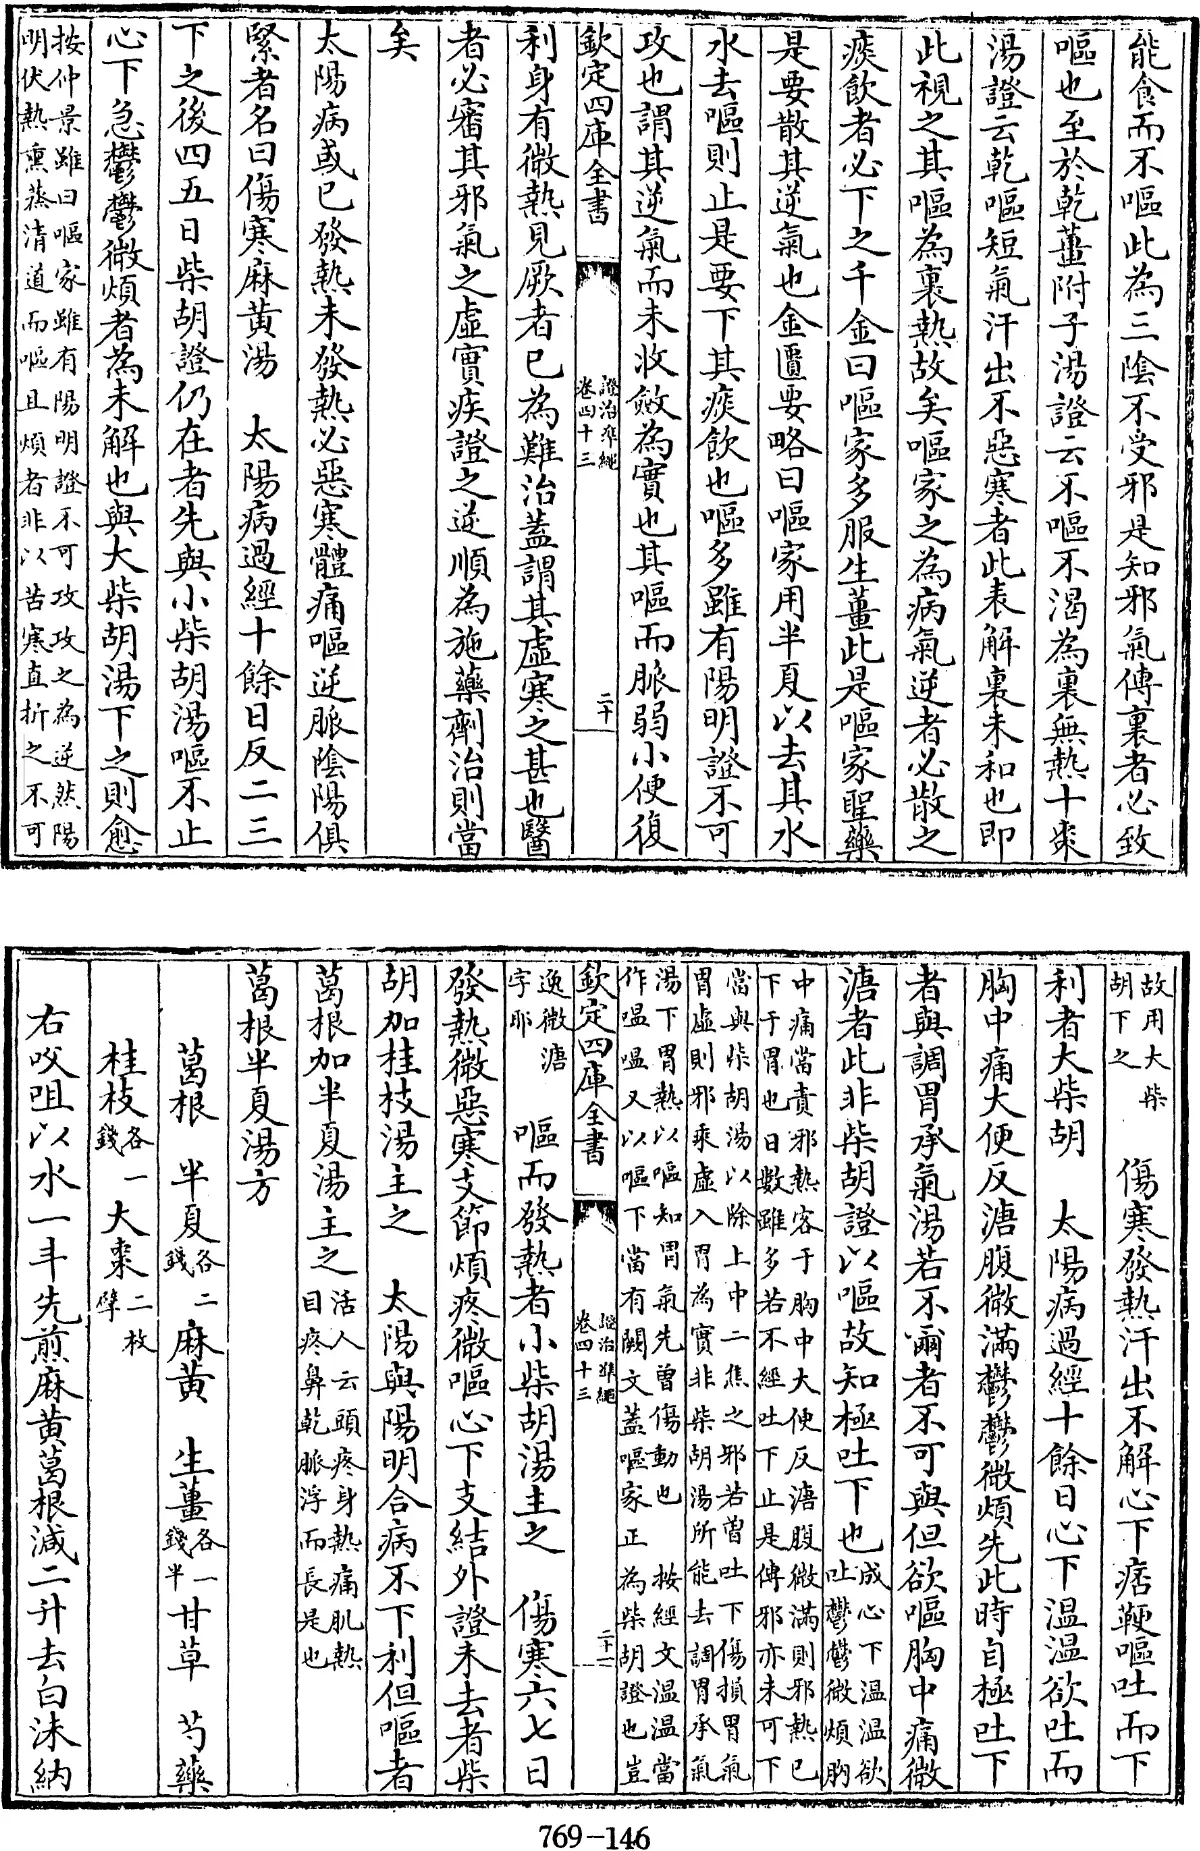 能食而不嘔此為三陰不受邪是知邪氣傳裏者必致
嘔也至於乾薑附子湯證云不嘔不渴為裏無熱十棗
湯證云乾嘔短氣汗出不惡寒者此表解裏未和也即
此視之其嘔為裏熱故矣嘔家之為病氣逆者必散之
痰飲者必下之千金曰嘔家多服生薑此是嘔家聖藥
是要散其逆氣也金匱要略曰嘔家用半夏以去其水
水去嘔則止是要下其痰飲也嘔多雖有陽明證不可
攻也謂其逆氣而未收斂為實也其嘔而脈弱小便復
欽定四庫全書
證治準繩
卷四十三
二十
利身有微熱見厥者已為難治蓋謂其虛寒之甚也醫
者必審其邪氣之虛實疾證之逆順為施藥劑治則當
矣
太陽病或已發熱未發熱必惡寒體痛嘔逆脈陰陽俱
緊者名曰傷寒麻黃湯　太陽病過經十餘日反二三
下之後四五日柴胡證仍在者先與小柴胡湯嘔不止
心下急鬱鬱微煩者為未解也與大柴胡湯下之則愈
按仲景雖曰嘔家雖有陽明證不可攻攻之為逆然陽
明伏熱熏蒸清道而嘔且煩者非以苦寒直折之不可
故用大柴
胡下之
傷寒發熱汗出不解心下痞鞕嘔吐而下
利者大柴胡　太陽病過經十餘日心下溫溫欲吐而
胸中痛大便反溏腹微滿鬱鬱微煩先此時自極吐下
者與調胃承氣湯若不爾者不可與但欲嘔胸中痛微
溏者此非柴胡證以嘔故知極吐下也
成心下溫溫欲
吐鬱鬱微煩胸
中痛當責邪熱客于胸中大便反溏腹微滿則邪熱已
下于胃也日數雖多若不經吐下止是傳邪亦未可下
當與柴胡湯以除上中二焦之邪若曾吐下傷損胃氣
胃虛則邪乘虛入胃為實非柴胡湯所能去調胃承氣
湯下胃熱以嘔知胃氣先曾傷動也　按經文溫溫當
作嗢嗢又以嘔下當有闕文蓋嘔家正為柴胡證也豈
欽定四庫全書
證治準繩
卷四十三
二十一
逸微溏
字耶
嘔而發熱者小柴胡湯主之　傷寒六七日
發熱微惡寒支節煩疼微嘔心下支結外證未去者柴
胡加桂枝湯主之　太陽與陽明合病不下利但嘔者
葛根加半夏湯主之
活人云頭疼身熱痛肌熱
目疼鼻乾脈浮而長是也
葛根半夏湯方
葛根　半夏各二錢　麻黃　生薑各一錢半　甘草　芍藥
桂枝各一錢　大棗二枚擘
右㕮咀以水一斗先煎麻黃葛根減二升去白沫納
769-146